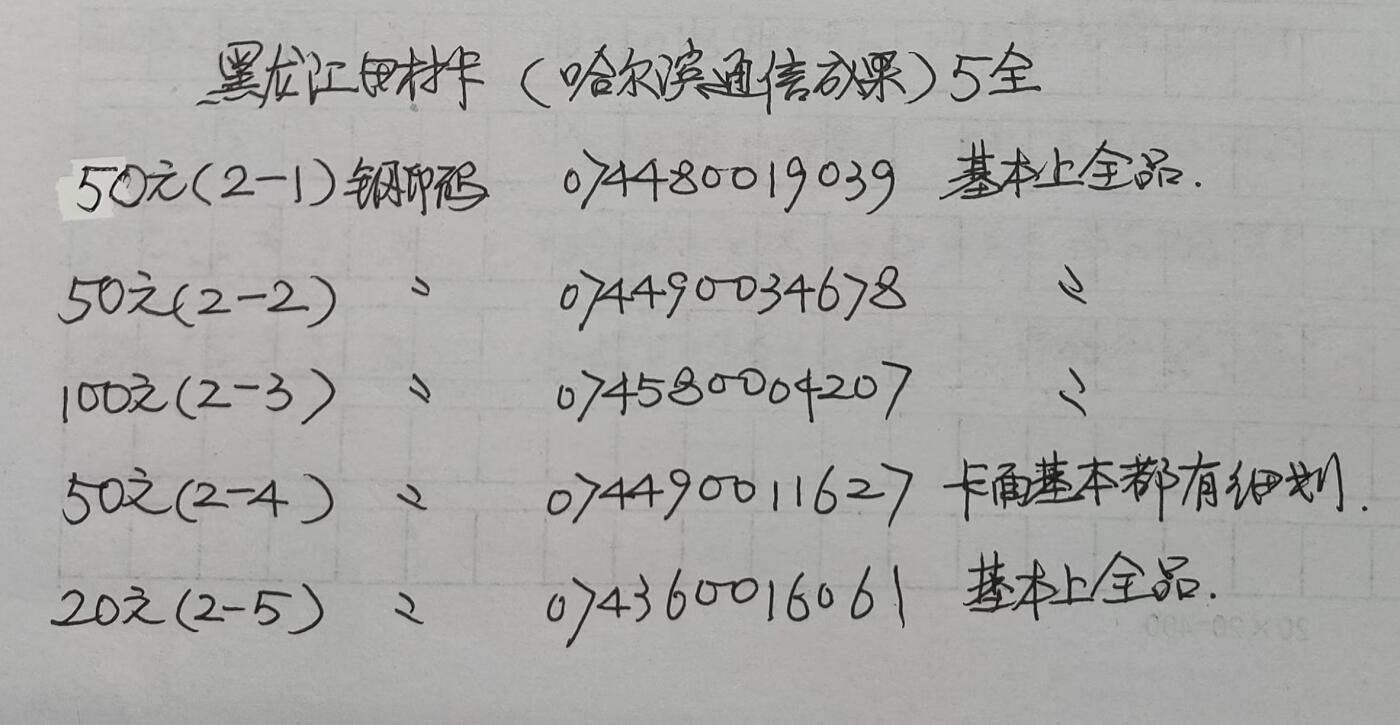 黑龙江田村卡（哈尔滨通信成果）5全
50元（2-1）钢印码 074480019039 基本上全品.
50元（2-2） 〃 074490034678 〃
100元（2-3） 〃 074580004207 〃
50元（2-4） 〃 074490011627 卡面基本都有细划.
20元（2-5） 〃 074360016061 基本上全品.
20×20=400